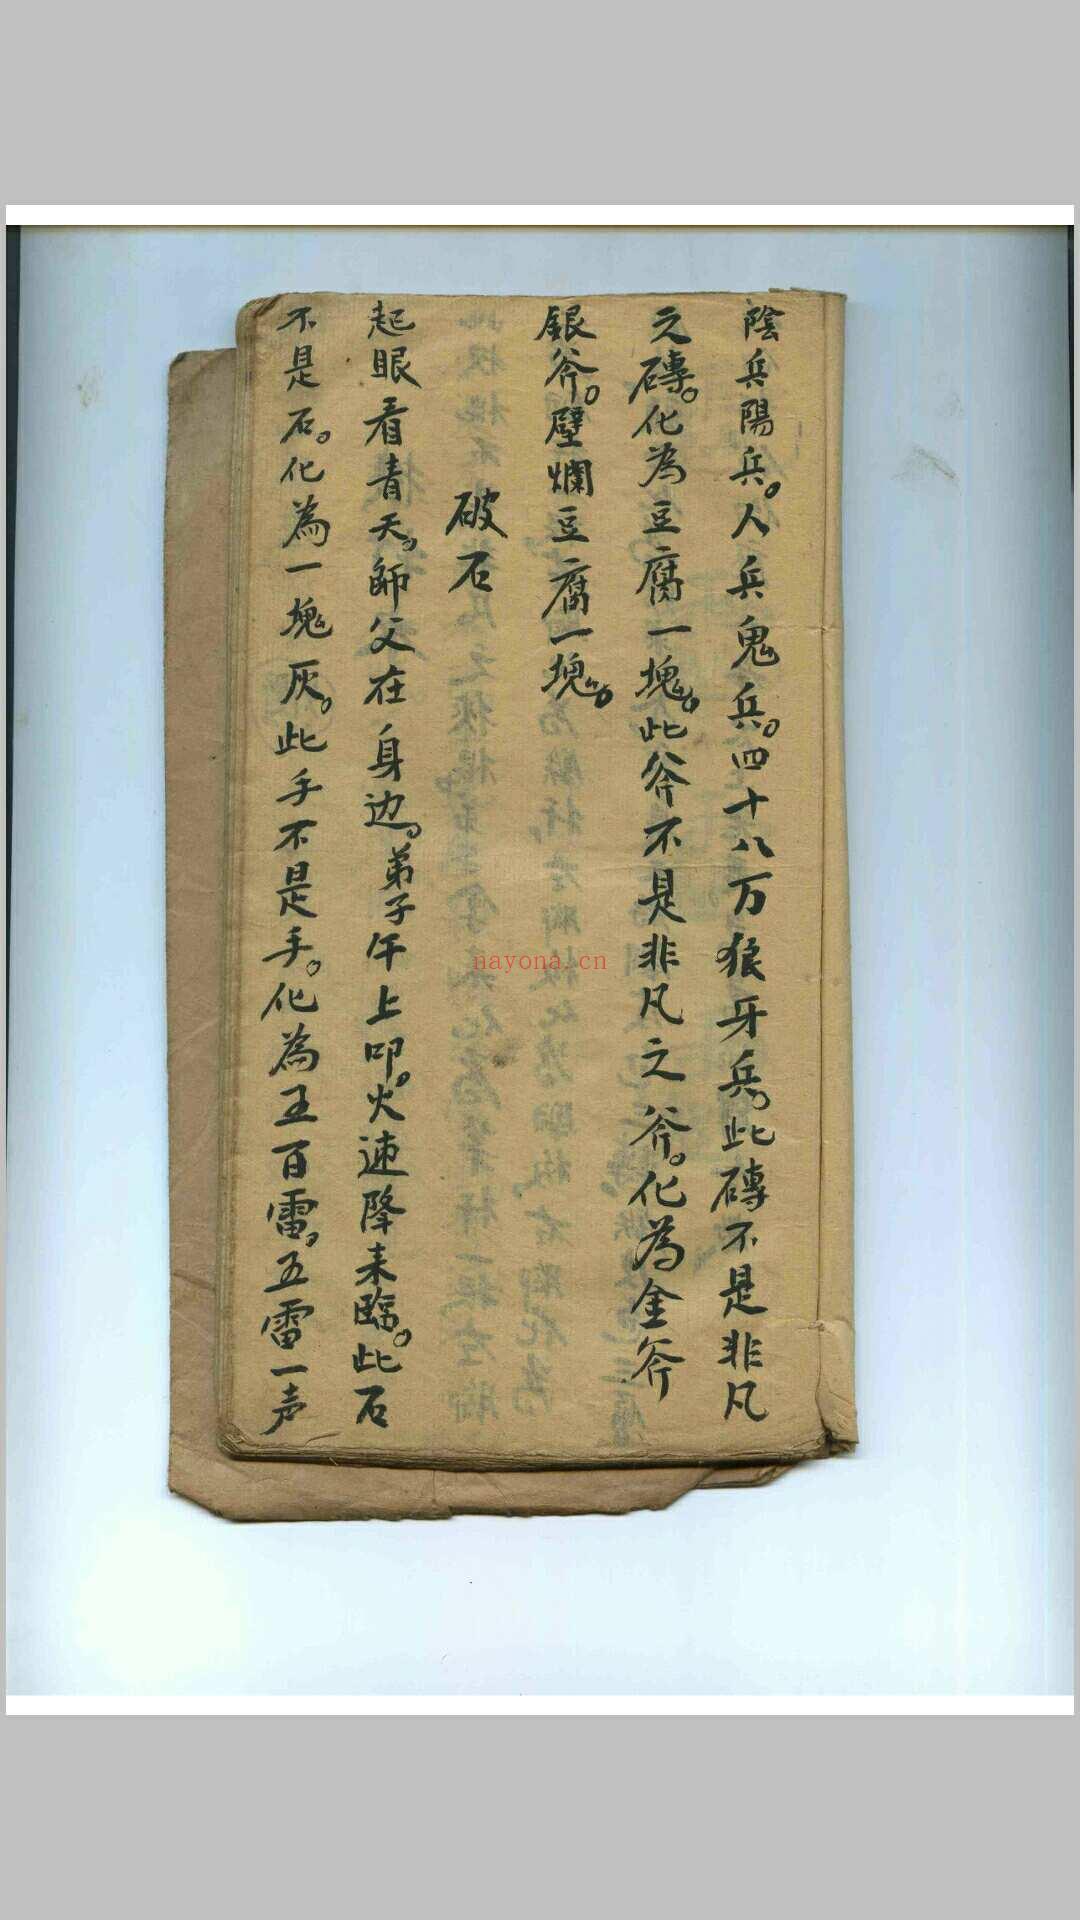 陰兵陽兵。人兵鬼兵。四十八万狼牙兵。此磚不是非凡
之磚。化為豆腐一塊。此斧不是非凡之斧。化為金斧
銀斧。壁爛豆腐一塊。
破石
起眼看青天。師父在身边。弟子午上叩。火速降来臨。此石
不是石。化為一塊灰。此手不是手。化為五百雷。五雷一声
nayona.cn